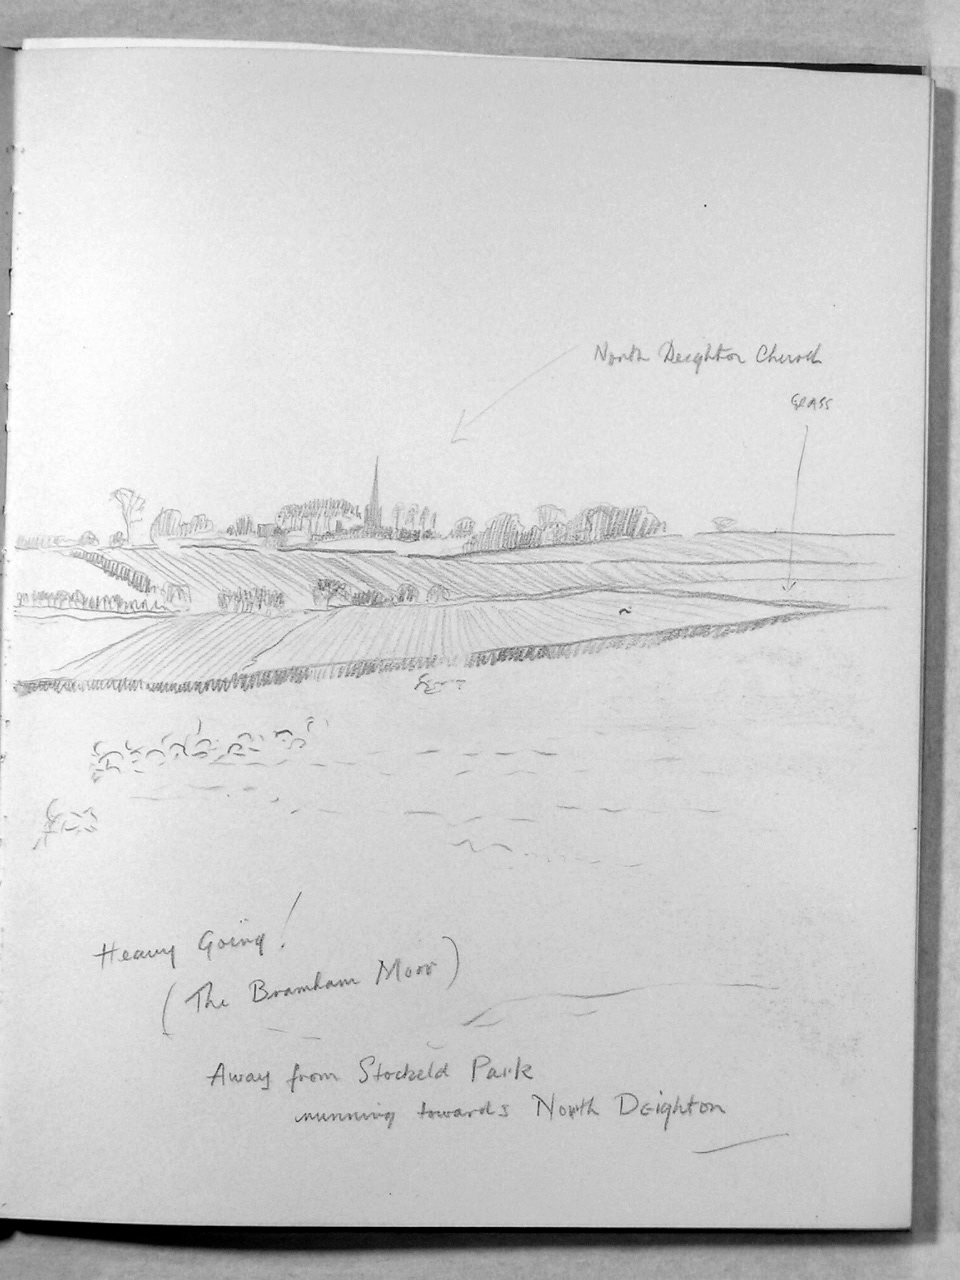 North Deighton Church
GRASS
Heavy Going!
(The Bramham Moor)
Away from Stockeld Park
running towards North Deighton